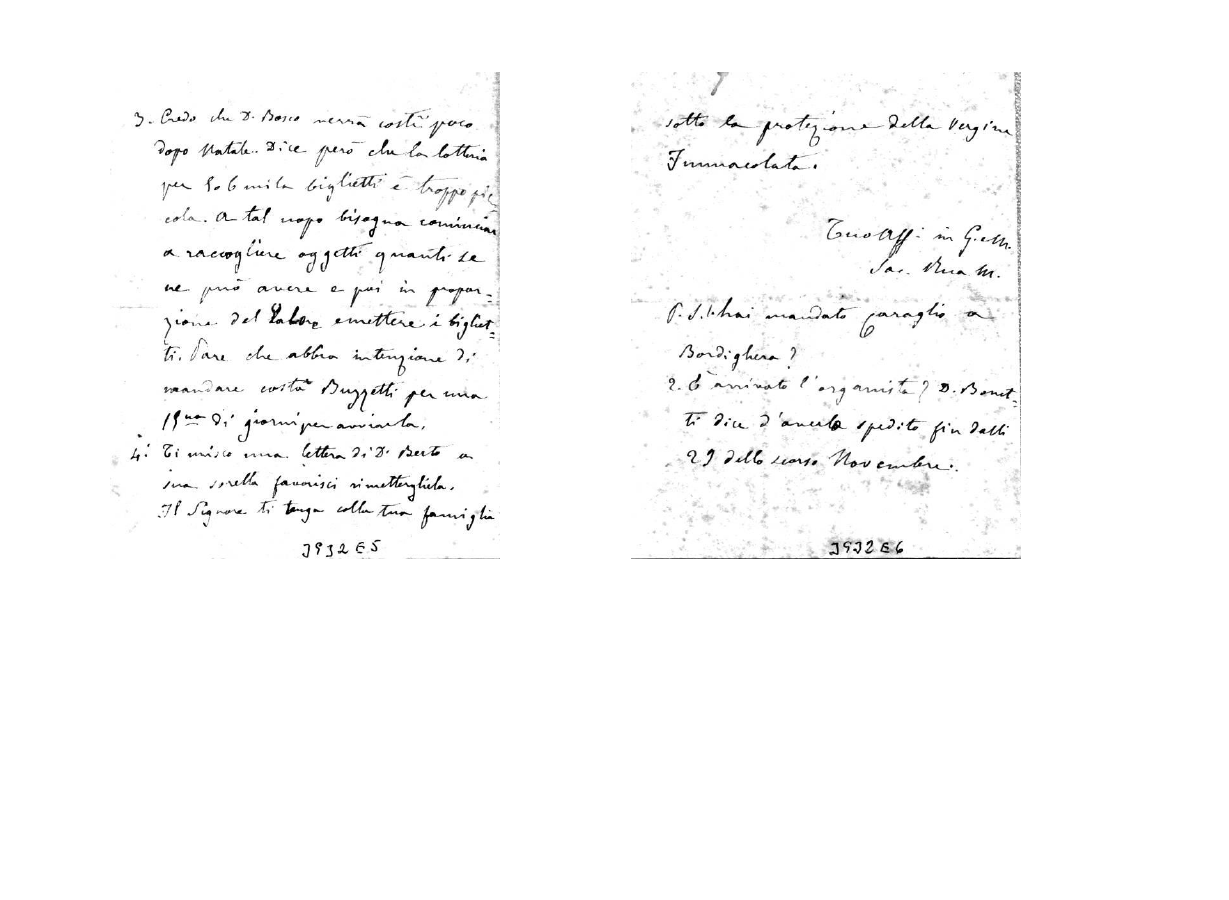 3. Credo che D. Bosco verrà costì poco
dopo Natale. Dice però che la lotteria
per 5 o 6 mila biglietti è troppo pic
cola. A tal uopo bisogna cominciar
a raccogliere oggetti quanti se
ne può avere e poi in propor=
zione del valore emettere i bigliet=
ti. Pare che abbia intenzione di
mandare costà Buzzetti per una
15na di giorni per avviarla.
4. Ti unisco una lettera di D. Berto a
sua sorella favorisci rimettergliela.
Il Signore ti tenga colla tua famiglia
J932E5
sotto la protezione della Vergine
Immacolata.
Tuo Aff. in G. e M.
Sac. Rua M.
P.S. 1. hai mandato Caraglio a
Bordighera?
2. È arrivato l'organista? D. Bonet=
ti dice d'averlo spedito fin dalli
29 dello scorso Novembre.
J932E6